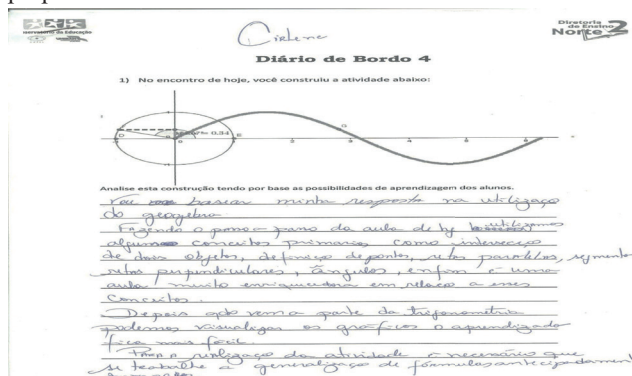 Secretaria da Educação
Diretoria
de Ensino
Norte 2
Cirlene
Diário de Bordo 4
1) No encontro de hoje, você construiu a atividade abaixo:
0.34
D
E
2
Analise esta construção tendo por base as possibilidades de aprendizagem dos alunos.
Vou basear minha resposta na utilização
do geogebra
Fazendo o passo a passo da aula de hj utilizamos
alguns conceitos primários como intersecção
de dois objetos, definição de pontos, retas paralelas, segmento
retas perpendiculares, ângulos, enfim é uma
aula muito enriquecedora em relação a esses
conceitos.
Depois qdo vem a parte da trigonometria
podemos visualizar os gráficos o aprendizado
fica mais fácil.
Para a realização da atividade é necessário que
se trabalhe a generalização de fórmulas antecipadament